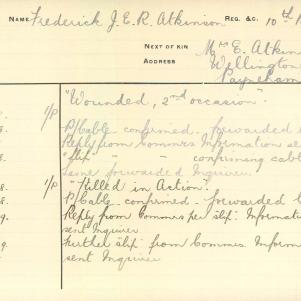 NAME Frederick J. E. R. Atkinson REG. &C. 10th
NEXT OF KIN Mrs E. Atkin
ADDRESS Wellington
Payneham
1/P "Wounded, 2nd occasion".
P/Cable confirmed. forwarded
Reply from Commrs Information sen
"slip" " " confirming cabl
Same forwarded Inquirer.
8. 1/P "Killed in Action".
8. P/Cable confirmed. forwarded t
9. Reply from Commrs per slip. Informati
sent Inquirer
9. Further slip from Commrs. Inform
sent Inquirer